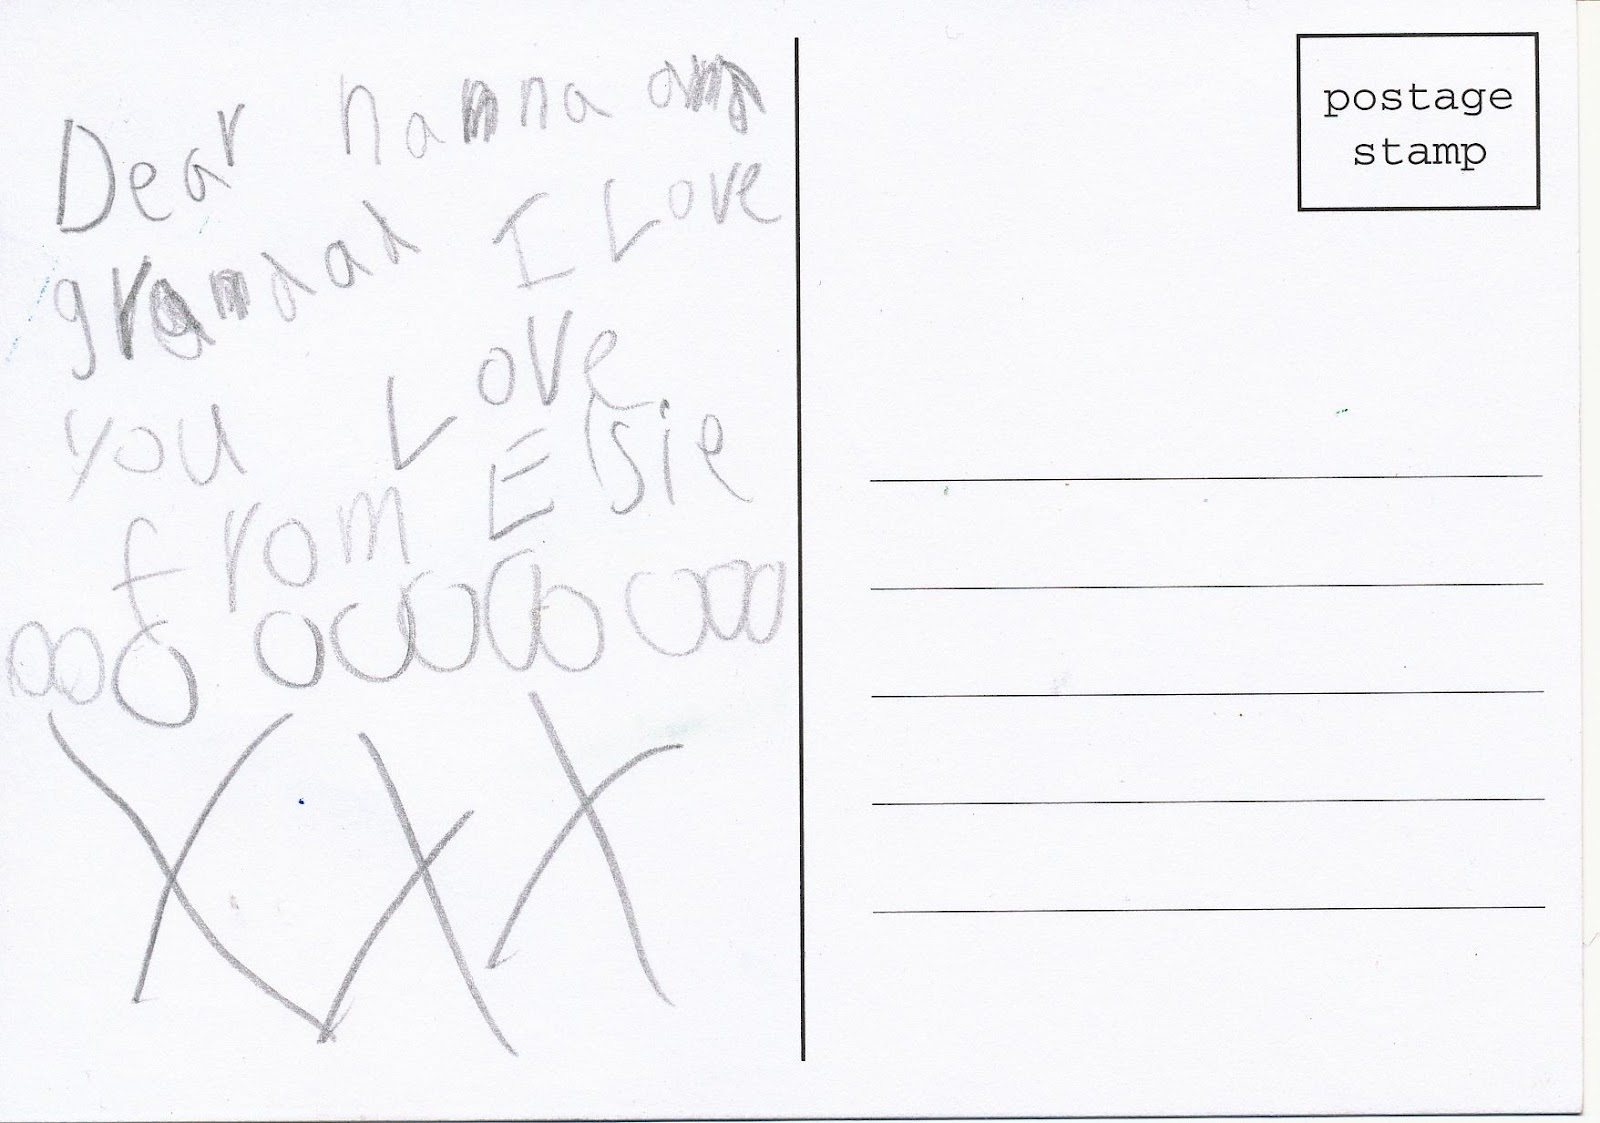 Dear nanna and
grandad I Love
you Love
from Elsie
ooo ooooo ooo
XXX
postage
stamp